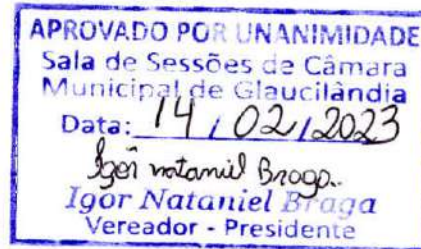 APROVADO POR UNANIMIDADE
Sala de Sessões de Câmara
Municipal de Glaucilândia
Data: 14 / 02 / 2023
Igor nataniel Braga.
Igor Nataniel Braga
Vereador - Presidente